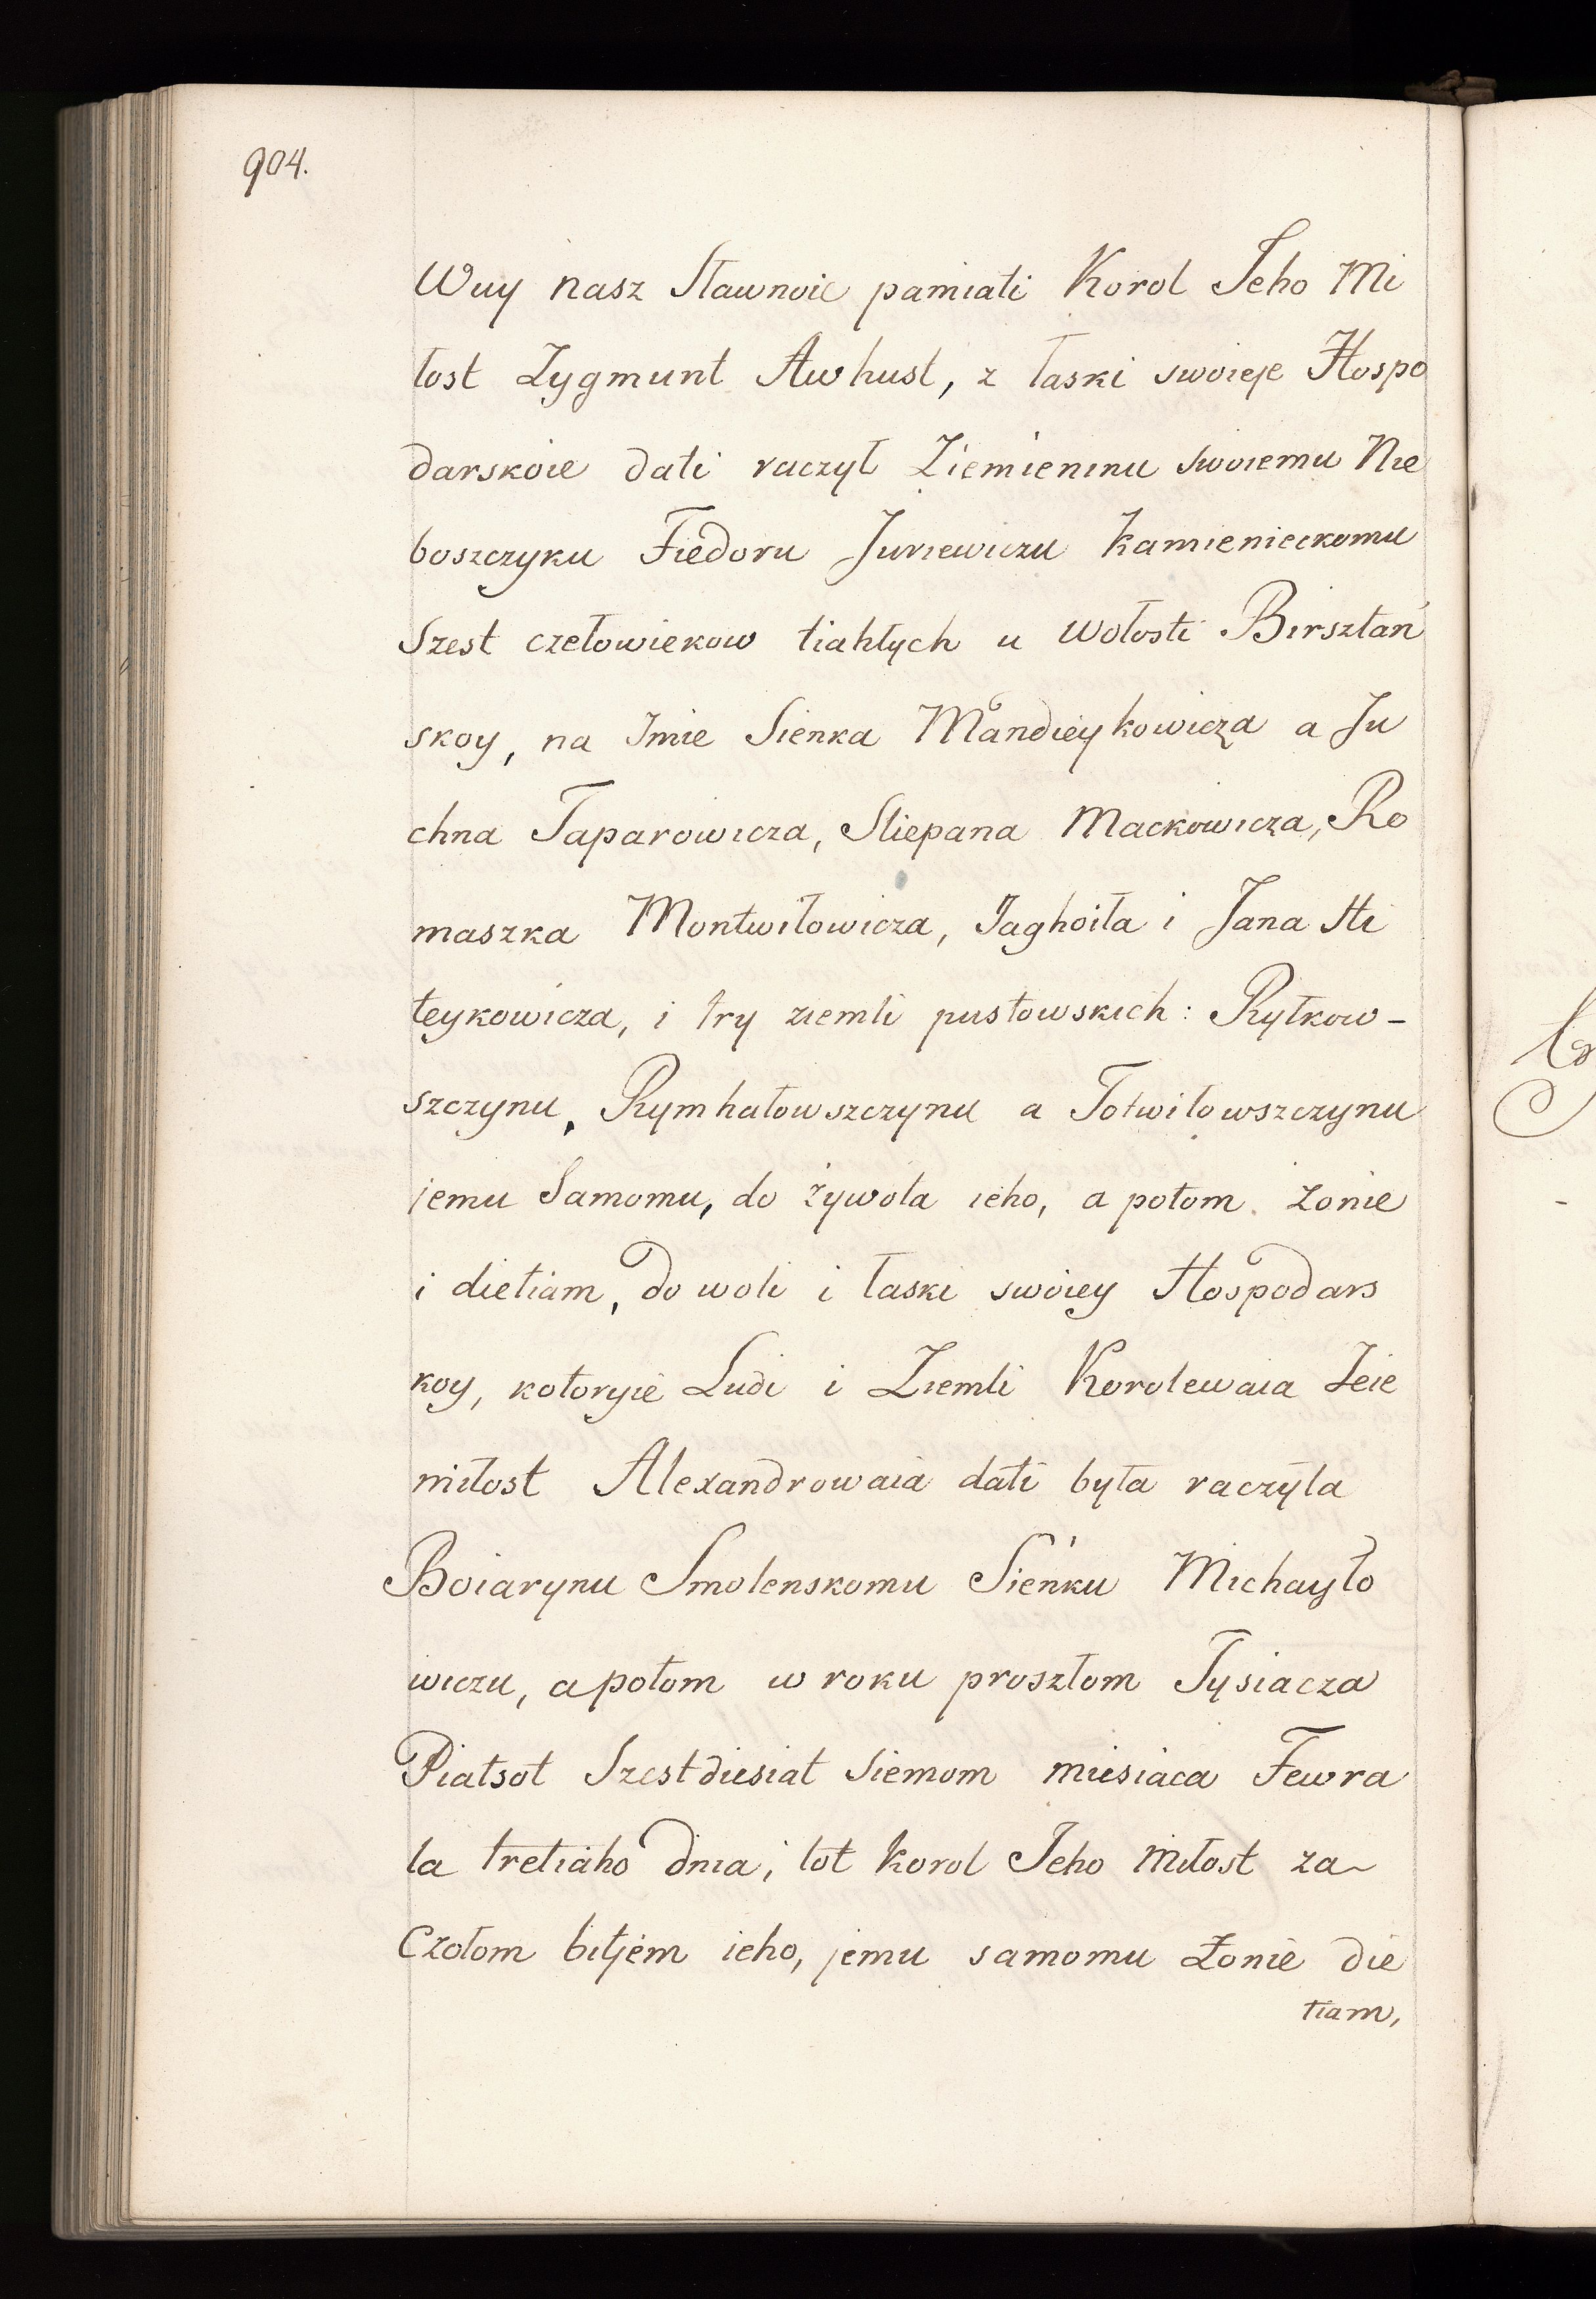 904.
Wuy nasz Sławnoie pamiati Korol Jeho Mi
łost Zygmunt Awhust, z łaski swoieje Hospo
darskoie dati raczył Ziemieninu swoiemu Nie
boszczyku Fiedoru Juriewiczu Kamienieckomu
Szest czełowiekow tiahłych u Wołosti Birsztan
skoy, na Imie Sienka Mandieykowicza a Ju
chna Taparowicza, Stiepana Mackowicza, Ro
maszka Montwiłowicza, Jaghoiła i Jana Hi
teykowicza, i try ziemli pustowskich: Rytkow-
szczynu, Rymhałowszczynu a Totwiłowszczynu
jemu Samomu, do żywota ieho, a potom żonie
i dietiam, do woli i łaski swoiey Hospodars
koy, kotoryie Ludi i Ziemli Korolewaia Jeie
miłost Alexandrowaia dati była raczyła
Boiarynu Smolenskomu Sieńku Michayło
wiczu, a potom w roku proszłom Tysiacza
Piatsot Szestdiesiat Siemom miesiaca Fewra
la tretiaho dnia, tot Korol Jeho Miłost za
Czołom bitjem ieho, jemu samomu Żonie die
tiam,